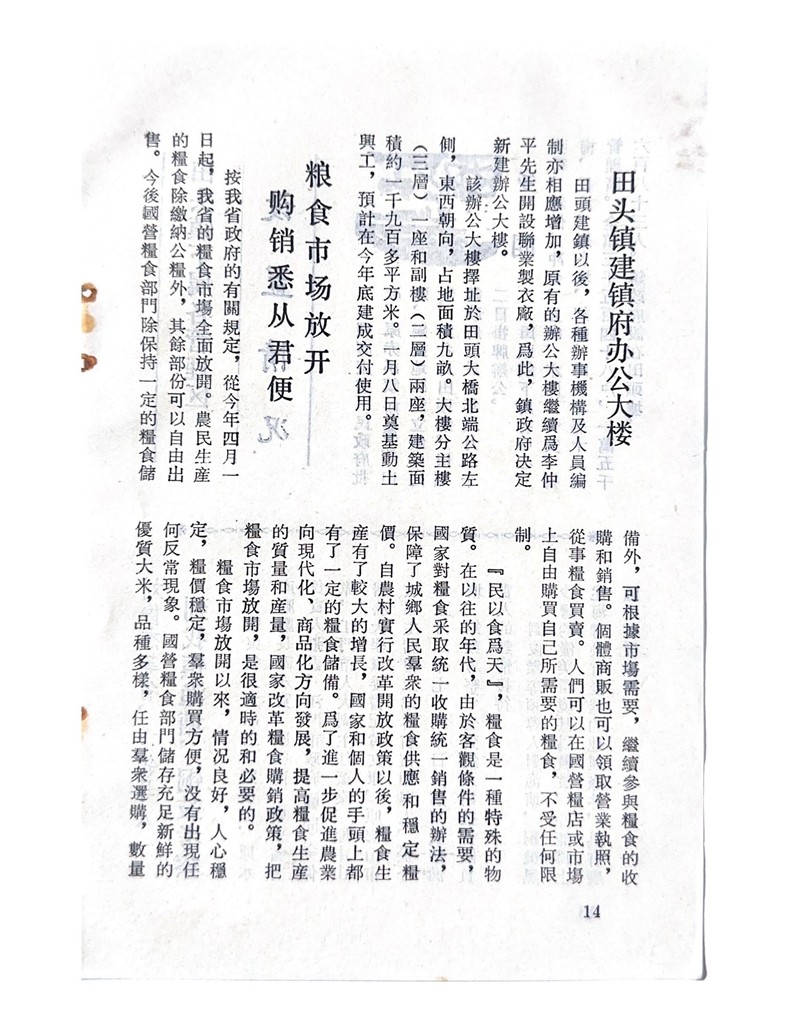 田头镇建镇府办公大楼
田頭建鎮以後，各種辦事機構及人員編
制亦相應增加，原有的辦公大樓繼續爲李仲
平先生開設聯業製衣廠，爲此，鎮政府決定
新建辦公大樓。
該辦公大樓擇址於田頭大橋北端公路左
側，東西朝向，占地面積九畝。大樓分主樓
（三層）一座和副樓（二層）兩座，建築面
積約一千九百多平方米。一月八日奠基動土
興工，預計在今年底建成交付使用。
粮食市场放开
购销悉从君便
按我省政府的有關規定，從今年四月一
日起，我省的糧食市場全面放開。農民生産
的糧食除繳納公糧外，其餘部份可以自由出
售。今後國營糧食部門除保持一定的糧食儲
備外，可根據市場需要，繼續參與糧食的收
購和銷售。個體商販也可以領取營業執照，
從事糧食買賣。人們可以在國營糧店或市場
上自由購買自己所需要的糧食，不受任何限
制。
『民以食爲天』，糧食是一種特殊的物
質。在以往的年代，由於客觀條件的需要，
國家對糧食采取統一收購統一銷售的辦法，
保障了城鄉人民羣衆的糧食供應和穩定糧
價。自農村實行改革開放政策以後，糧食生
産有了較大的增長，國家和個人的手頭上都
有了一定的糧食儲備。爲了進一步促進農業
向現代化、商品化方向發展，提高糧食生産
的質量和産量，國家改革糧食購銷政策，把
糧食市場放開，是很適時的和必要的。
糧食市場放開以來，情況良好，人心穩
定，糧價穩定，羣衆購買方便，没有出現任
何反常現象。國營糧食部門儲存充足新鮮的
優質大米，品種多樣，任由羣衆選購，數量
14